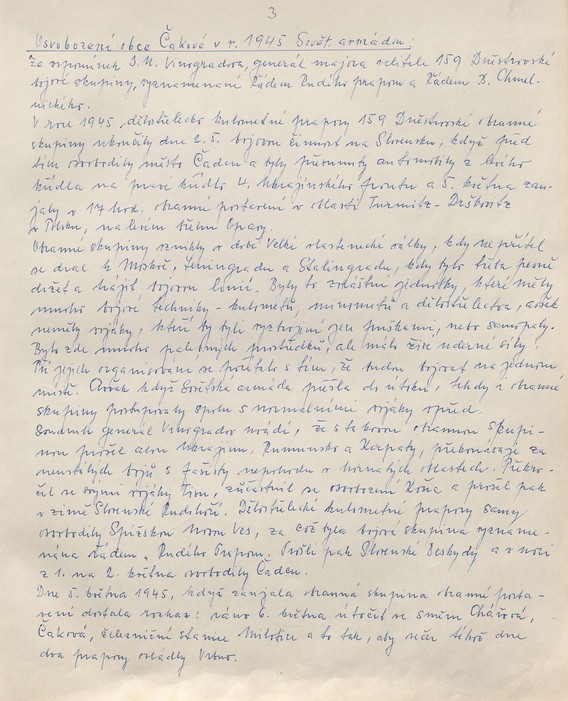 3
Osvobození obce Čaková v r. 1945 Sovět. armádou:
Ze vspomínek D. N. Vinogradova, generál majora velitele 159 Dněstrovské
bojové skupiny, vyznamenané Řádem Rudého praporu a Řádem B. Chmel-
nického.
V roce 1945 dělostřelecko kulometné prapory 159 Dněstrovské obranné
skupiny ukončily dne 2. 5. bojovou činnost na Slovensku, když před
tím osvobodily město Čadca a byly přesunuty automobily z levého
křídla na pravé křídlo 4. Ukrajinského frontu a 5. května zau-
jaly v 17 hod. obranné postavení v oblasti
v Polsku, na levém břehu Opavy.
Obranné skupiny vznikly v době Velké vlastenecké války, kdy se nepřítel
se dral k Moskvě, Leningradu a Stalingradu, kdy bylo třeba pevně
držet a hájit bojovou linii. Byly to zvláštní jednotky, které měly
mnoho bojové techniky - kulometů, minometů a dělostřelectva, avšak
neměly vojáky, kteří by byli vyzbrojeni jen puškami, nebo samopaly.
Bylo zde mnoho palebných prostředků, ale málo živé úderné síly.
Při jejich organisování se počítalo s tím, že budou bojovat na jednom
místě. Avšak když Sovětská armáda přešla do útoku, tehdy i obranné
skupiny postupovaly spolu s normálními vojáky vpřed.
Soudruh generál Vinogradov uvádí, že s takovou obrannou skupi-
nou prošel celou Ukrajinu, Rumunsko a Karpaty, překonávaje za
neustálých bojů s fašisty nepohodu v hornatých oblastech. Překro-
čil se svými vojáky Tisu, zúčastnil se osvobození Košic a prošel pak
v zimě Slovenské Rudohoří. Dělostřelecké kulometné prapory samy
osvobodily Spišskou Novou Ves, za což byla bojová skupina vyzname-
nána Řádem „Rudého Praporu. Prošli pak Slovenské Beskydy a v noci
z 1. na 2. května osvobodily Čadcu.
Dne 5. května 1945, když zaujala obranná skupina obranné posta-
vení dostala rozkaz: ráno 6. května útočit ve směru
Čaková, železniční stanice Milotice a to tak, aby večer téhož dne
dva prapory ovládly Vrbno.